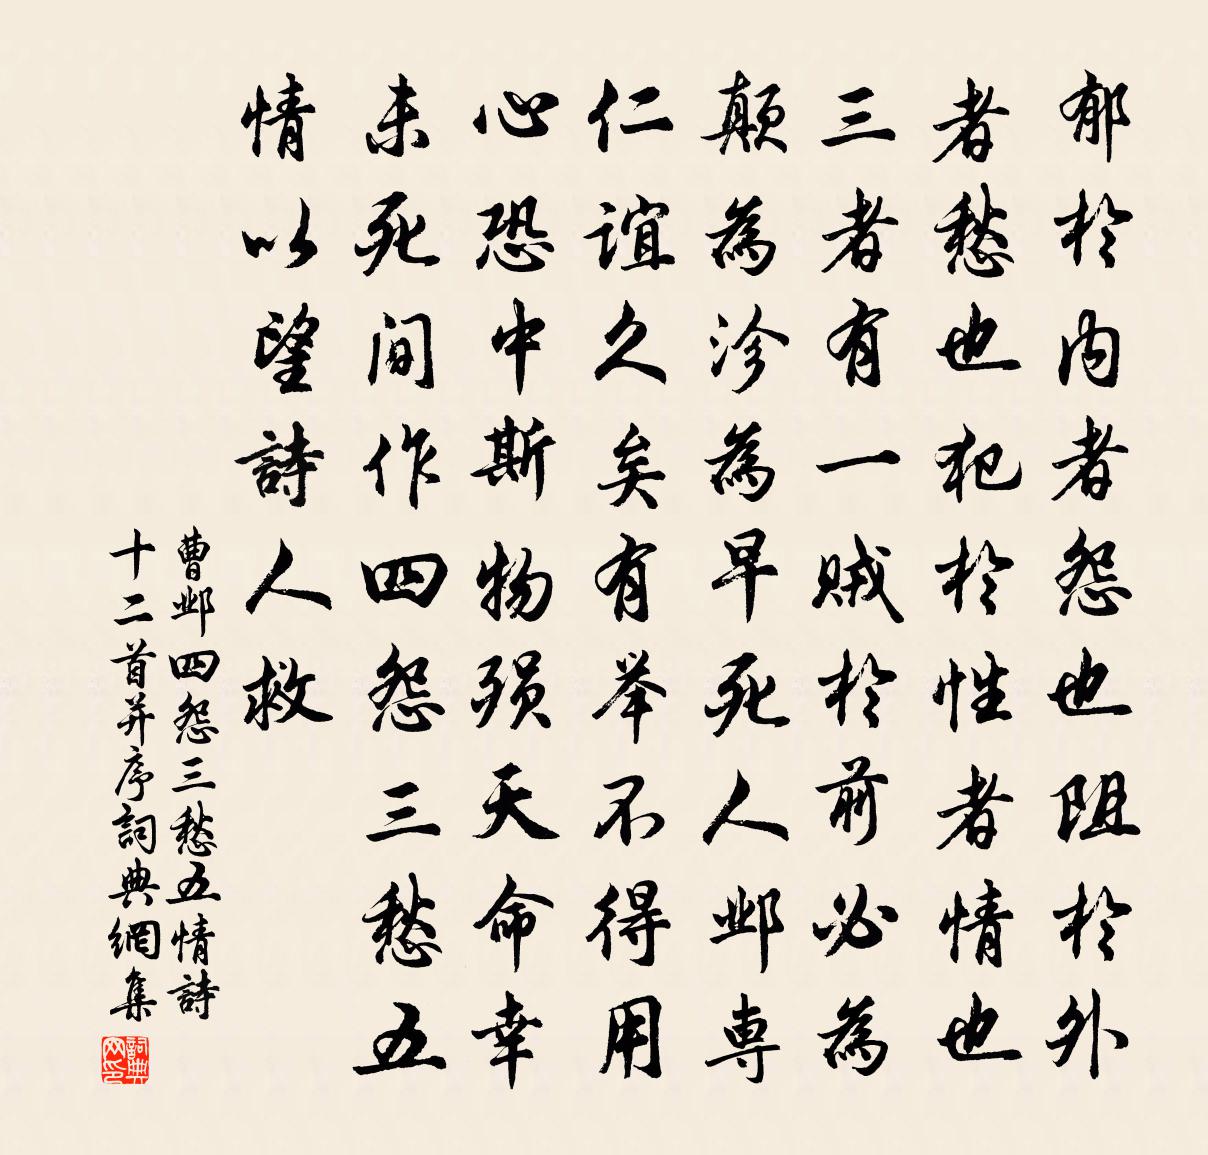 郁於內者怨也阻於外
者愁也犯於性者情也
三者有一賊於前必為
顛為沴為早死人鄴專
仁誼久矣有举不得用
心恐中斯物殞天命幸
未死間作四怨三愁五
情以望詩人救
曹鄴四怨三愁五情詩
十二首并序詞典網集
詞典网印